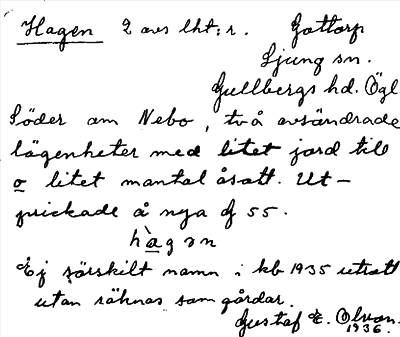 Hagen 2 avs lht:r. Gottorp
Ljung sn.
Gullbergs hd. Ögl
Söder om Nebo, två avsöndrade
lägenheter med litet jord till
o litet mantal åsatt. Ut-
prickade å nya G 55.
hàgən
Ej särskilt namn i kb 1935 utsatt
utan räknas som gårdar.
Gustaf E. Olson.
1936.